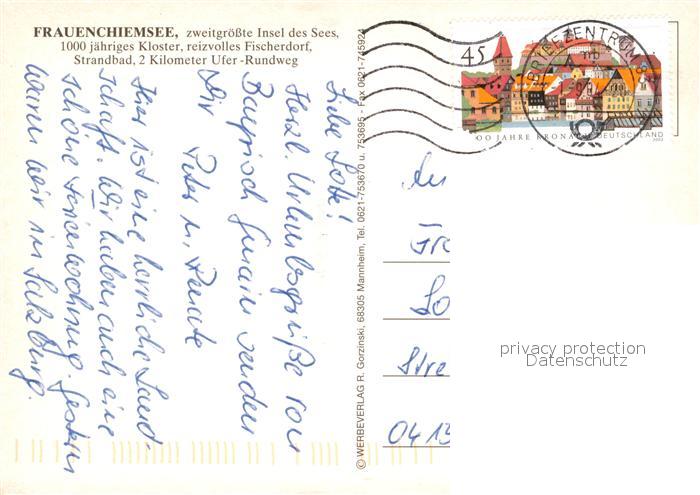 FRAUENCHIEMSEE, zweitgrößte Insel des Sees,
1000 jähriges Kloster, reizvolles Fischerdorf,
Strandbad, 2 Kilometer Ufer-Rundweg
Liebe Lotti!
Herzl. Urlaubsgrüße von
Bayrisch Gmain senden
Dir Peter u. Renate
Hier ist eine herrliche Land-
schaft. Wir haben auch eine
schöne Ferienwohnung. Gestern
waren wir in Salzburg.
© WERBEVERLAG R. Gorzinski, 68305 Mannheim, Tel. 0621-753670 u. 753695 - Fax 0621-745924
45
BRIEFZENTRUM
00 JAHRE KRONACH DEUTSCHLAND
2003
An
Fr
Lo
Stre
0413
privacy protection
Datenschutz